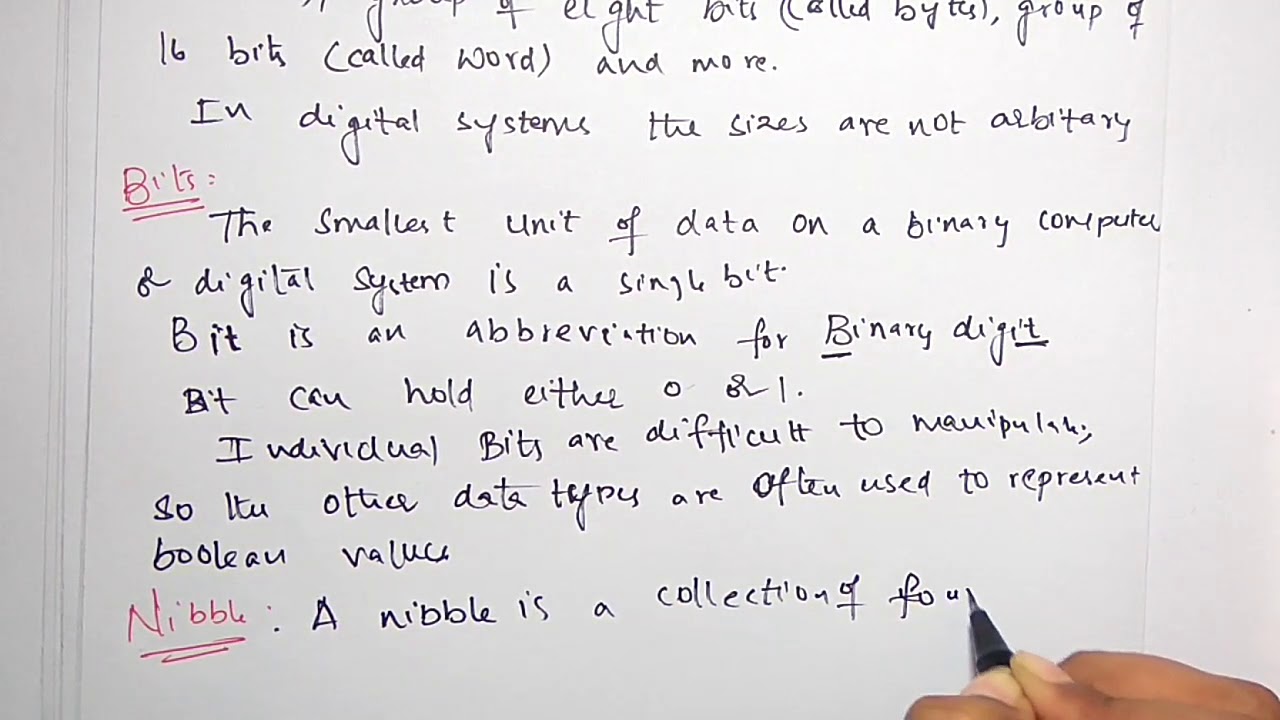 group of eight bits (called bytes), group of
16 bits (called word) and more.
In digital systems the sizes are not arbitary
Bits:
The smallest unit of data on a binary computer
or digital system is a single bit.
Bit is an abbreviation for Binary digit
Bit can hold either 0 or 1.
Individual Bits are difficult to manipulate,
so the other data types are often used to represent
boolean values
Nibble: A nibble is a collection of fou